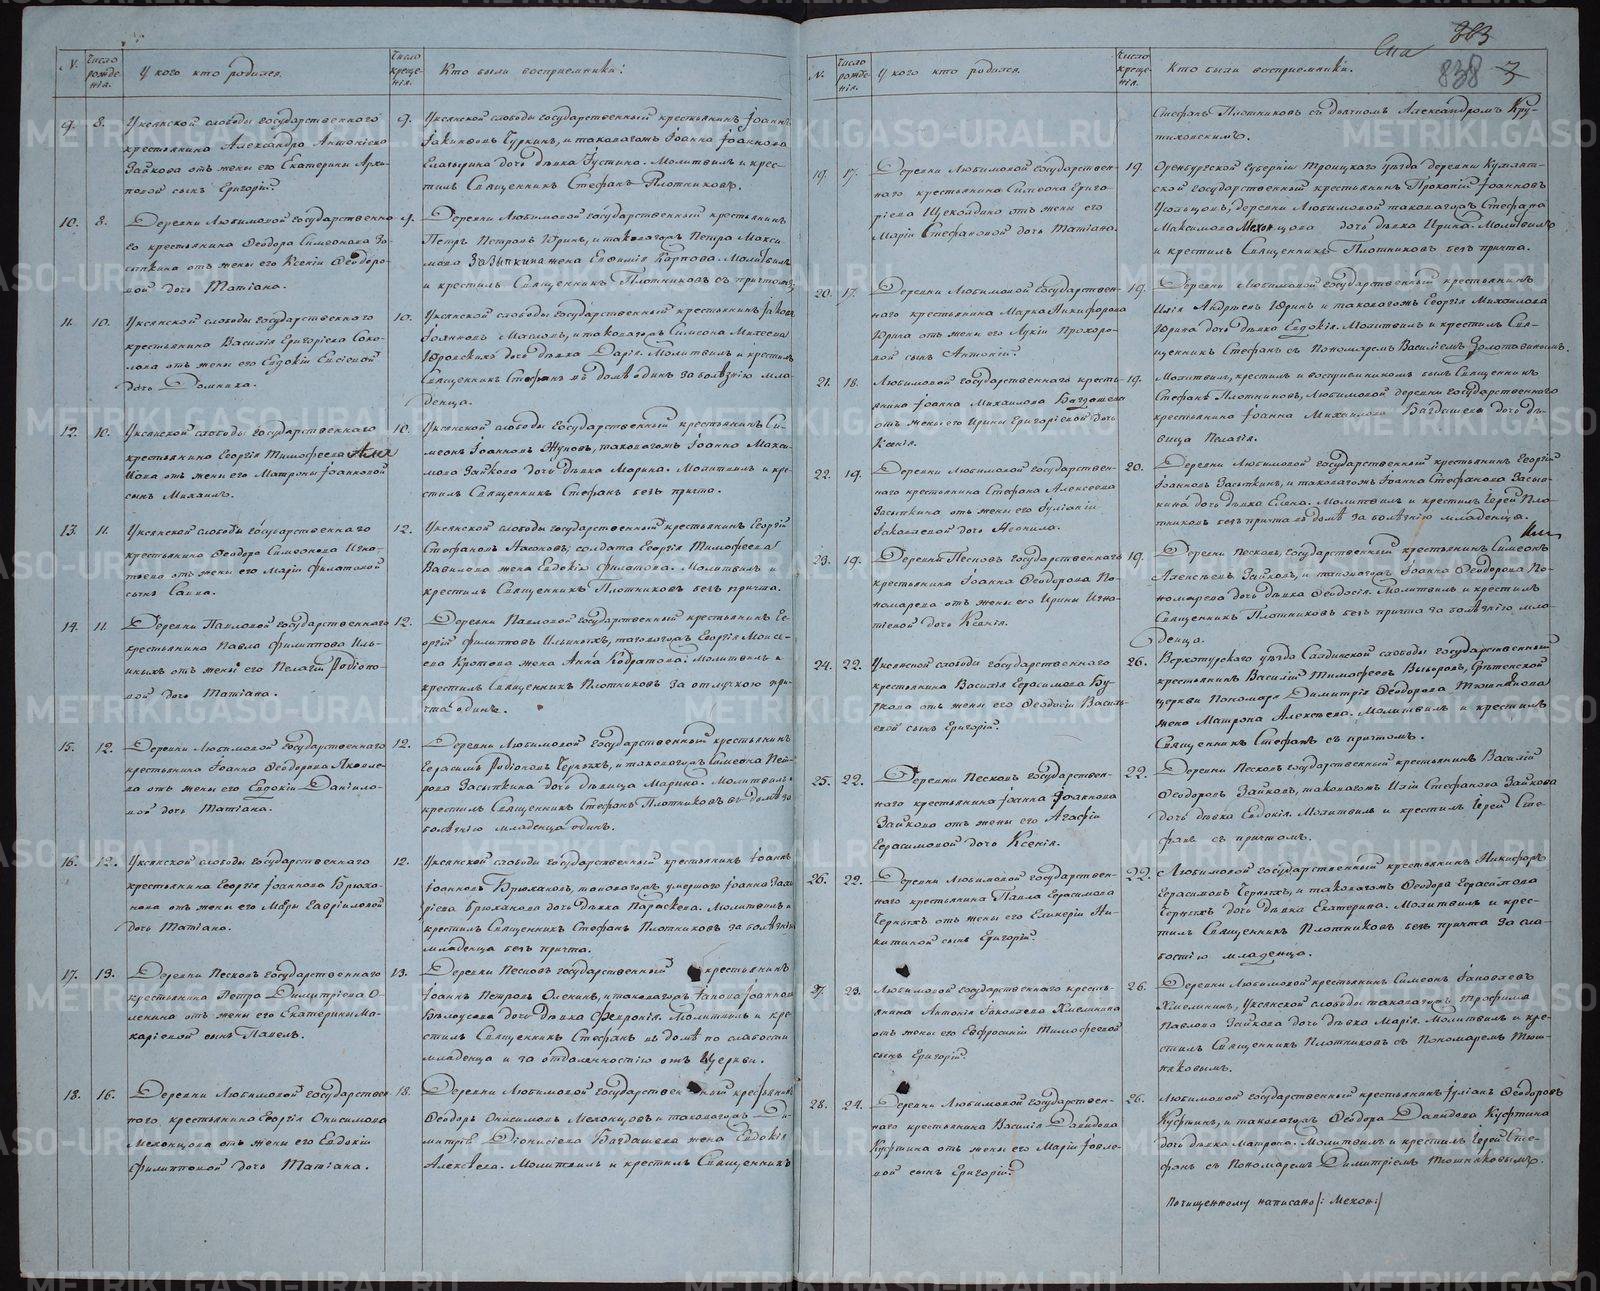 N.
Число рожде-
нія.
У кого кто родился.
Число креще-
нія.
Кто были восприемники:
9. 8.
Уксянской слободы государственнаго
крестьянина Александра Антоніева
Зайкова отъ жены его Екатерины Архи-
повой сынъ Григорій.
9.
Уксянской слободы государственный крестьянинъ Іоаннъ
Буркинъ, и таковагожъ Іоанна Іоаннова
дочь дѣвка Іустина. Молитвилъ и крес-
тилъ Священникъ Стефанъ Плотниковъ.
10. 8.
Деревни Любимовой государственна-
го крестьянина Ѳеодора Симеонова За-
сыпкина отъ жены его Ксеніи Ѳеодоро-
вой дочь Татіана.
9.
Деревни Любимовой государственный крестьянинъ
Петръ Петровъ Юринъ, и таковагожъ Петра Макси-
мова Засыпкина жена Евфимія Карпова. Молитвилъ
и крестилъ Священникъ Плотниковъ съ причтомъ.
11. 10.
Уксянской слободы государственнаго
крестьянина Василія Григоріева Соко-
лова отъ жены его Евдокіи
дочь Домника.
10.
Уксянской слободы государственный крестьянинъ Іаковъ
Іоанновъ и таковагожъ Симеона Михеева
Юровскихъ дочь дѣвка Дарія. Молитвилъ и крестилъ
Священникъ Стефанъ въ домѣ одинъ за болѣзнію мла-
денца.
12. 10.
Уксянской слободы государственнаго
крестьянина Георгія Тимофеева
отъ жены его Матроны Іоанновой
сынъ Михаилъ.
10.
Уксянской слободы государственный крестьянинъ Си-
меонъ Іоанновъ Жуковъ, таковагожъ Іоанна Макси-
мова Зайкова дочь дѣвка Марина. Молитвилъ и кре-
стилъ Священникъ Стефанъ безъ причта.
13. 11.
Уксянской слободы государственнаго
крестьянина Ѳеодора Симеонова Игна-
тьева отъ жены его Маріи Филатовой
сынъ Савва.
12.
Уксянской слободы государственный крестьянинъ Георгій
Стефановъ солдата Георгія Тимофеева
Вавилова жена Евдокія Филатова. Молитвилъ и
крестилъ Священникъ Плотниковъ безъ причта.
14. 11.
Деревни Павловой государственнаго
крестьянина Павла Филиппова Иль-
иныхъ отъ жены его Пелагіи Родіоно-
вой дочь Татіана.
12.
Деревни Павловой государственный крестьянинъ Ге-
оргій Филипповъ Ильиныхъ, таковагожъ Георгія Моисе-
ева Кротова жена Анна Кодратова. Молитвилъ и
крестилъ Священникъ Плотниковъ за отлучкою при-
чта одинъ.
15. 12.
Деревни Любимовой государственнаго
крестьянина Іоанна Ѳеодорова Яковле-
ва отъ жены его Евдокіи Даніило-
вой дочь Татіана.
12.
Деревни Любимовой государственный крестьянинъ
Герасимъ Родіоновъ Черныхъ, и таковагожъ Симеона Пет-
рова Засыпкина дочь дѣвица Марина. Молитвилъ и
крестилъ Священникъ Стефанъ Плотниковъ въ домѣ за
болѣзнію младенца одинъ.
16. 12.
Уксянской слободы государственнаго
крестьянина Георгія Іоаннова Брюха-
нова отъ жены его Мавры Гавриловой
дочь Татіана.
12.
Уксянской слободы государственный крестьянинъ Іоаннъ
Іоанновъ Брюхановъ, таковагожъ умершаго Іоанна Заха-
ріева Брюханова дочь дѣвка Параскева. Молитвилъ и
крестилъ Священникъ Стефанъ Плотниковъ за болѣзнію
младенца безъ причта.
17. 13.
Деревни Песковъ государственнаго
крестьянина Петра Димитріева О-
ленина отъ жены его Екатерины Ма-
каріевой сынъ Павелъ.
13.
Деревни Песковъ государственный крестьянинъ
Іоаннъ Петровъ Оленинъ, и таковагожъ Іакова Іоаннова
Бѣлоусова дочь дѣвка Ѳевронія. Молитвилъ и кре-
стилъ Священникъ Стефанъ въ домѣ по слабости
младенца и за отдаленностію отъ Церкви.
18. 16.
Деревни Любимовой государствен-
наго крестьянина Георгія Онисимова
Мехонцова отъ жены его Евдокіи
Филипповой дочь Татіана.
18.
Деревни Любимовой государственный крестьянинъ
Ѳеодоръ Онисимовъ Мехонцовъ и таковагожъ Ди-
митрія Діонисіева Багдашева жена Евдокія
Алексѣева. Молитвилъ и крестилъ Священникъ
383
838 3
N.
Число рожде-
нія.
У кого кто родился.
Число креще-
нія.
Кто были восприемники.
Стефанъ Плотниковъ съ дьячкомъ Александромъ Кру-
тиховскимъ.
19. 17.
Деревни Любимовой государствен-
наго крестьянина Симеона Григо-
ріева Щеколдина отъ жены его
Маріи Стефановой дочь Татіана.
19.
Оренбургской губерніи Троицкаго уѣзда деревни
ской государственный крестьянинъ Прокопій Іоанновъ
Усольцовъ, деревни Любимовой таковагожъ Стефана
Максимова Мехонцова дочь дѣвка Ирина. Молитвилъ
и крестилъ Священникъ Плотниковъ безъ причта.
20. 17.
Деревни Любимовой государствен-
наго крестьянина Марка Никифорова
Юрина отъ жены его Лукіи Прохоро-
вой сынъ Антоній.
19.
Деревни Любимовой государственный крестьянинъ
Илія Андреевъ Юринъ и таковагожъ Георгія Михайлова
Юрина дочь дѣвка Евдокія. Молитвилъ и крестилъ Свя-
щенникъ Стефанъ съ Пономаремъ Василіемъ Золотавинымъ.
21. 18.
Любимовой государственнаго кресть-
янина Іоанна Михайлова Багдашева
отъ жены его Ирины Григорьевой дочь
Ксенія.
19.
Молитвилъ, крестилъ и восприемникомъ былъ Священникъ
Стефанъ Плотниковъ, Любимовой деревни государственнаго
крестьянина Іоанна Михайлова Багдашева дочь дѣ-
вица Пелагія.
22. 19.
Деревни Любимовой государствен-
наго крестьянина Стефана Алексеева
Засыпкина отъ жены его Іуліаніи
Іаковлевой дочь Неонила.
20.
Деревни Любимовой государственный крестьянинъ Георгій
Іоанновъ Засыпкинъ, и таковагожъ Іоанна Стефанова Засып-
кина дочь дѣвка Елена. Молитвилъ и крестилъ Іерей Пло-
тниковъ безъ причта въ домѣ за болѣзнію младенца.
23. 19.
Деревни Песковъ государственнаго
крестьянина Іоанна Ѳеодорова По-
номарева отъ жены его Ирины Игна-
тіевой дочь Ксенія.
19.
Деревни Песковъ, государственный крестьянинъ Симеонъ
Алексѣевъ Зайковъ, и таковагожъ Іоанна Ѳеодорова По-
номарева дочь дѣвка Ѳеодосія. Молитвилъ и крестилъ
Священникъ Плотниковъ безъ причта за болѣзнію мла-
денца.
24. 22.
Уксянской слободы государственнаго
крестьянина Василія Герасимова Бу-
ркова отъ жены его Ѳеодосіи Василь-
евой сынъ Григорій.
26.
Верхотурскаго уѣзда Салдинской слободы государственный
крестьянинъ Василій Тимофеевъ Выборовъ, Срѣтенской
церкви Пономаря Димитрія Ѳеодорова Тюшнякова
жена Матрона Алексѣева. Молитвилъ и крестилъ
Священникъ Стефанъ съ причтомъ.
25. 22.
Деревни Песковъ государствен-
наго крестьянина Іоанна Іоаннова
Зайкова отъ жены его Агафіи
Герасимовой дочь Ксенія.
22.
Деревни Песковъ государственный крестьянинъ Василій
Ѳеодоровъ Зайковъ, таковагожъ Иліи Стефанова Зайкова
дочь дѣвка Евдокія. Молитвилъ и крестилъ Іерей Сте-
фанъ съ причтомъ.
26. 22.
Деревни Любимовой государствен-
наго крестьянина Павла Герасимова
Черныхъ отъ жены его Гликеріи Ни-
китиной сынъ Григорій.
22.
Любимовой государственный крестьянинъ Никифоръ
Герасимовъ Черныхъ, и таковагожъ Ѳеодора Герасимова
Черныхъ дочь дѣвка Екатерина. Молитвилъ и крес-
тилъ Священникъ Плотниковъ безъ причта за сла-
бостію младенца.
27. 23.
Любимовой государственнаго кресть-
янина Антонія Іаковлева Хмелинина
отъ жены его Евфросиніи Тимофеевой
сынъ Григорій.
26.
Деревни Любимовой крестьянинъ Симеонъ Іаковлевъ
Хмелининъ, Уксянской слободы таковагожъ Трофима
Павлова Зайкова дочь дѣвка Марія. Молитвилъ и кре-
стилъ Священникъ Плотниковъ съ Пономаремъ Тюш-
няковымъ.
28. 24.
Деревни Любимовой государствен-
наго крестьянина Василія Давидова
Куфтина отъ жены его Маріи Іовле-
вой сынъ Григорій.
26.
Любимовой государственный крестьянинъ Іуліанъ Ѳеодоровъ
Куфтинъ, и таковагожъ Ѳеодора Давидова Куфтина
дочь дѣвка Матрона. Молитвилъ и крестилъ Іерей Сте-
фанъ съ Пономаремъ Димитріемъ Тюшняковымъ.
Почищенному написано /: Мехон:/
METRIKI.GASO-URAL.RU